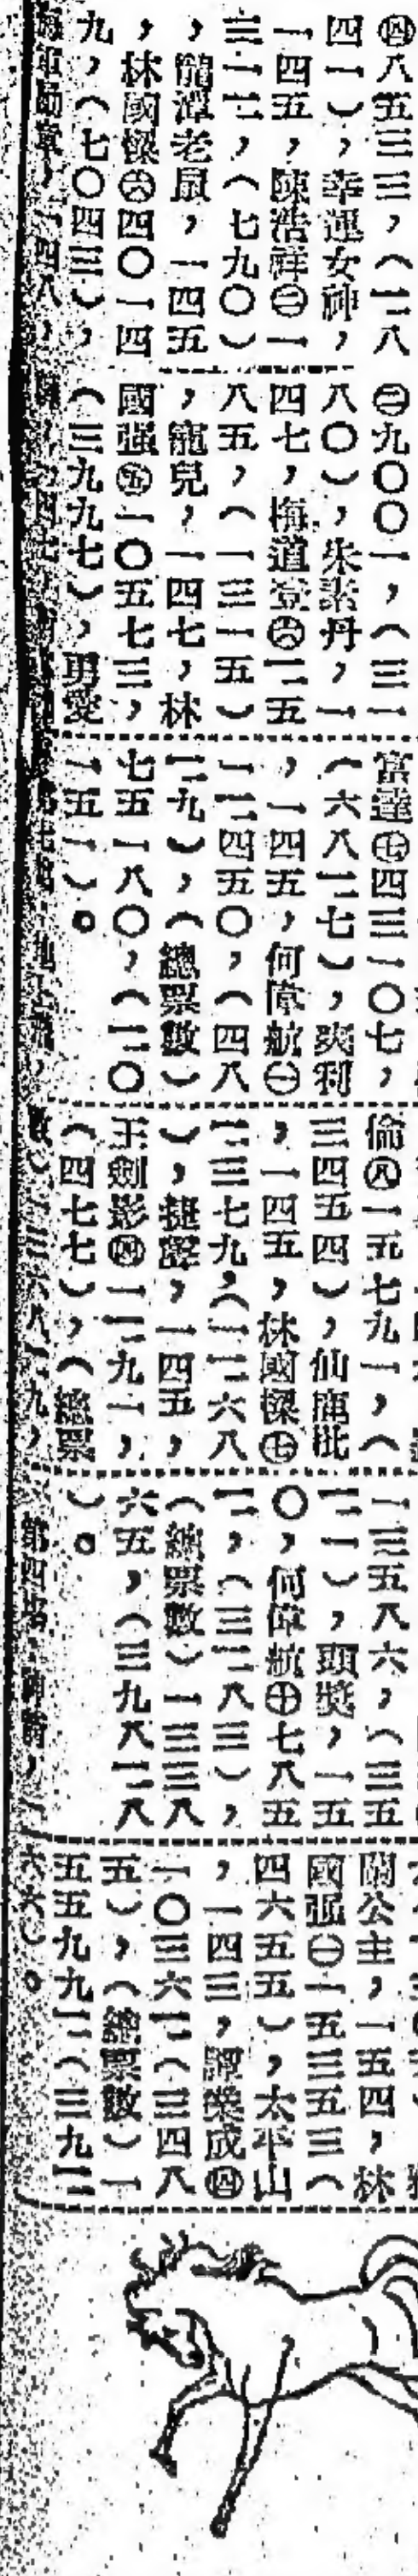 ㊃八五三三，（二八
四一），幸運女神，
一四五，陳浩祥㊁一
三一二，（七九〇）
，龍潭老鼠，一四五
，林國樑㊅四〇一四
九，（七〇四三），
一四八，
㊁九〇〇一，（三一
八〇），朱素丹，一
四七，梅道登㊅二五
八五，（一三一五）
，寵兒，一四七，林
國强㊄一〇五七三，
（三九九七），男愛
富達㊆四三一〇七，
（六八二七），爽利
，一四五，何偉航㊀
一二四五〇，（四八
二九），（總票數）
七五一八〇，（二〇
一五一）。
倫㊇一五七九一，（
三四五四），仙鹿批
，一四五，林國樑㊆
二三七九，（一二六八
），捷驛，一四五，
王劍影㊃一二九一，
（四七七），（總票
數）
一三五八六，（三五
二一），頭獎，一五
〇，何偉航㊉七八五
二，（三二八三），
（總票數）一三三八
六五，（三九八二八
）。
第四場
蘭公主，一五四，林
國强㊀一五三五三（
四六五五），太平山
，一四三，譚業成㊃
一〇三六二（三四八
五），（總票數）一
五五九九二（三九二
六六）。